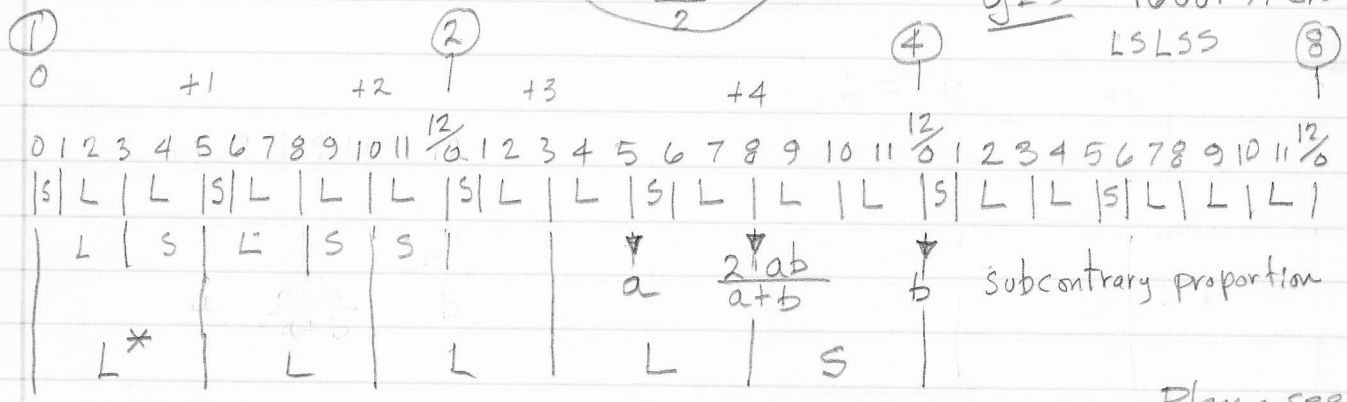 2
yes
LSLSS
① ② ④ ⑧
0 +1 +2 +3 +4
0 1 2 3 4 5 6 7 8 9 10 11 12/0 1 2 3 4 5 6 7 8 9 10 11 12/0 1 2 3 4 5 6 7 8 9 10 11 12/0
|S| L | L |S| L | L | L |S| L | L |S| L | L | L |S| L | L |S| L | L | L |
L | S | L | S | S | a 2ab/a+b b subcontrary proportion
L* | L | L | L | S